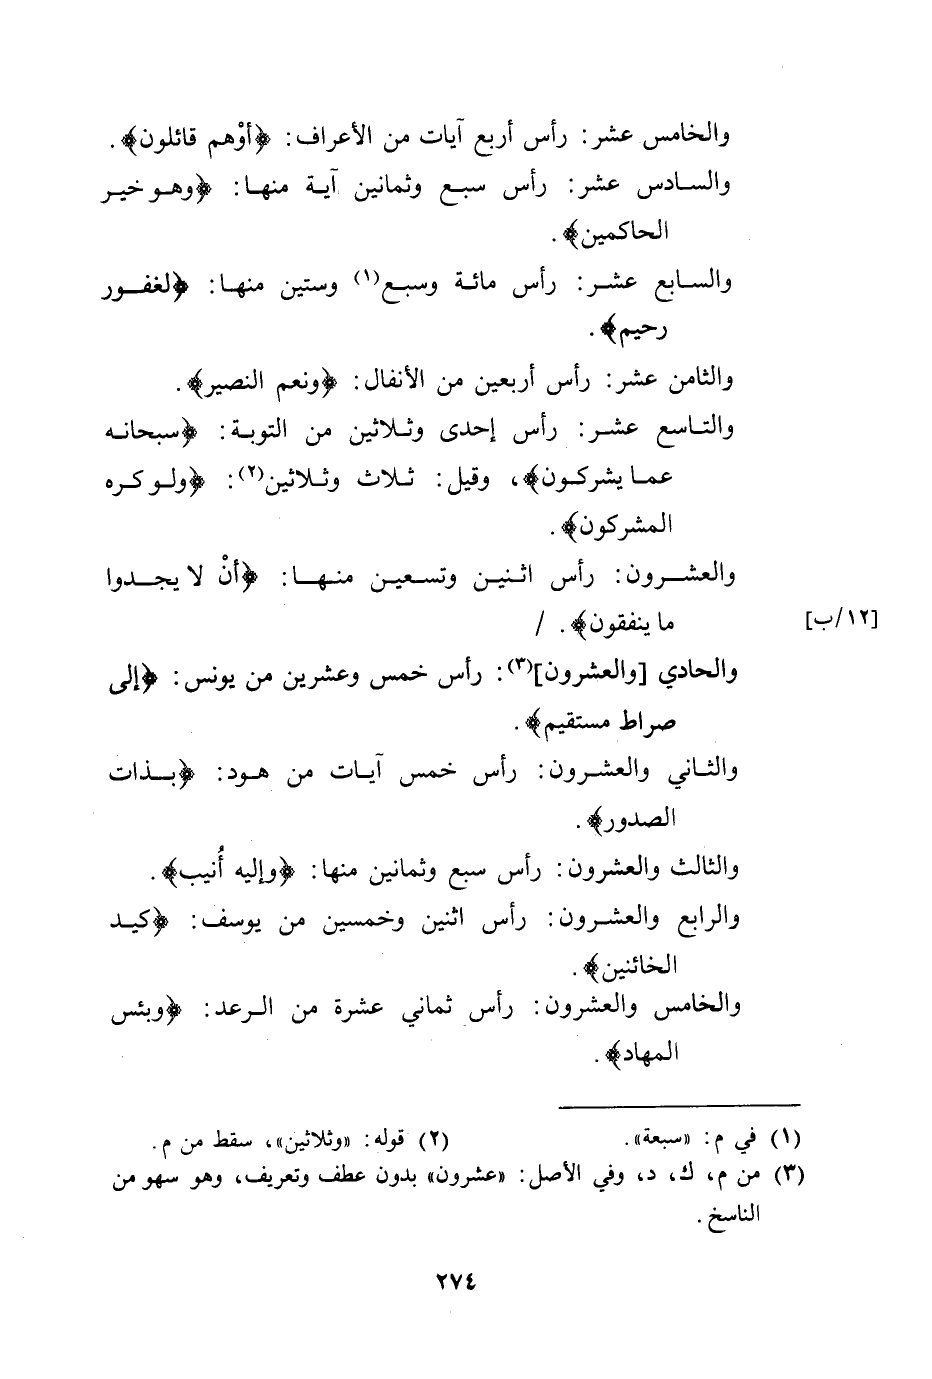 والخامس عشر: رأس أربع آيات من الأعراف: ﴿أوْهم قائلون﴾.
والسادس عشر: رأس سبع وثمانين آية منها: ﴿وهو خير
الحاكمين﴾.
والسابع عشر: رأس مائة وسبع(١) وستين منها: ﴿لغفور
رحيم﴾.
والثامن عشر: رأس أربعين من الأنفال: ﴿ونعم النصير﴾.
والتاسع عشر: رأس إحدى وثلاثين من التوبة: ﴿سبحانه
عما يشركون﴾، وقيل: ثلاث وثلاثين(٢): ﴿ولو كره
المشركون﴾.
والعشرون: رأس اثنين وتسعين منها: ﴿أنْ لا يجدوا
ما ينفقون﴾. /
[١٢/ب]
والحادي [والعشرون](٣): رأس خمس وعشرين من يونس: ﴿إلى
صراط مستقيم﴾.
والثاني والعشرون: رأس خمس آيات من هود: ﴿بذات
الصدور﴾.
والثالث والعشرون: رأس سبع وثمانين منها: ﴿وإليه أُنيب﴾.
والرابع والعشرون: رأس اثنين وخمسين من يوسف: ﴿كيد
الخائنين﴾.
والخامس والعشرون: رأس ثماني عشرة من الرعد: ﴿وبئس
المهاد﴾.
(١) في م: «سبعة». (٢) قوله: «وثلاثين»، سقط من م.
(٣) من م، ك، د، وفي الأصل: «عشرون» بدون عطف وتعريف، وهو سهو من
الناسخ.
٢٧٤